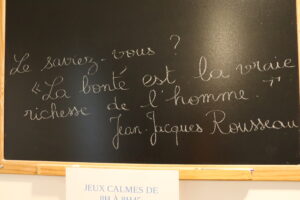 Le savez-vous ?
« La bonté est la vraie
richesse de l'homme. "
Jean-Jacques Rousseau
JEUX CALMES DE
8H À 8H45